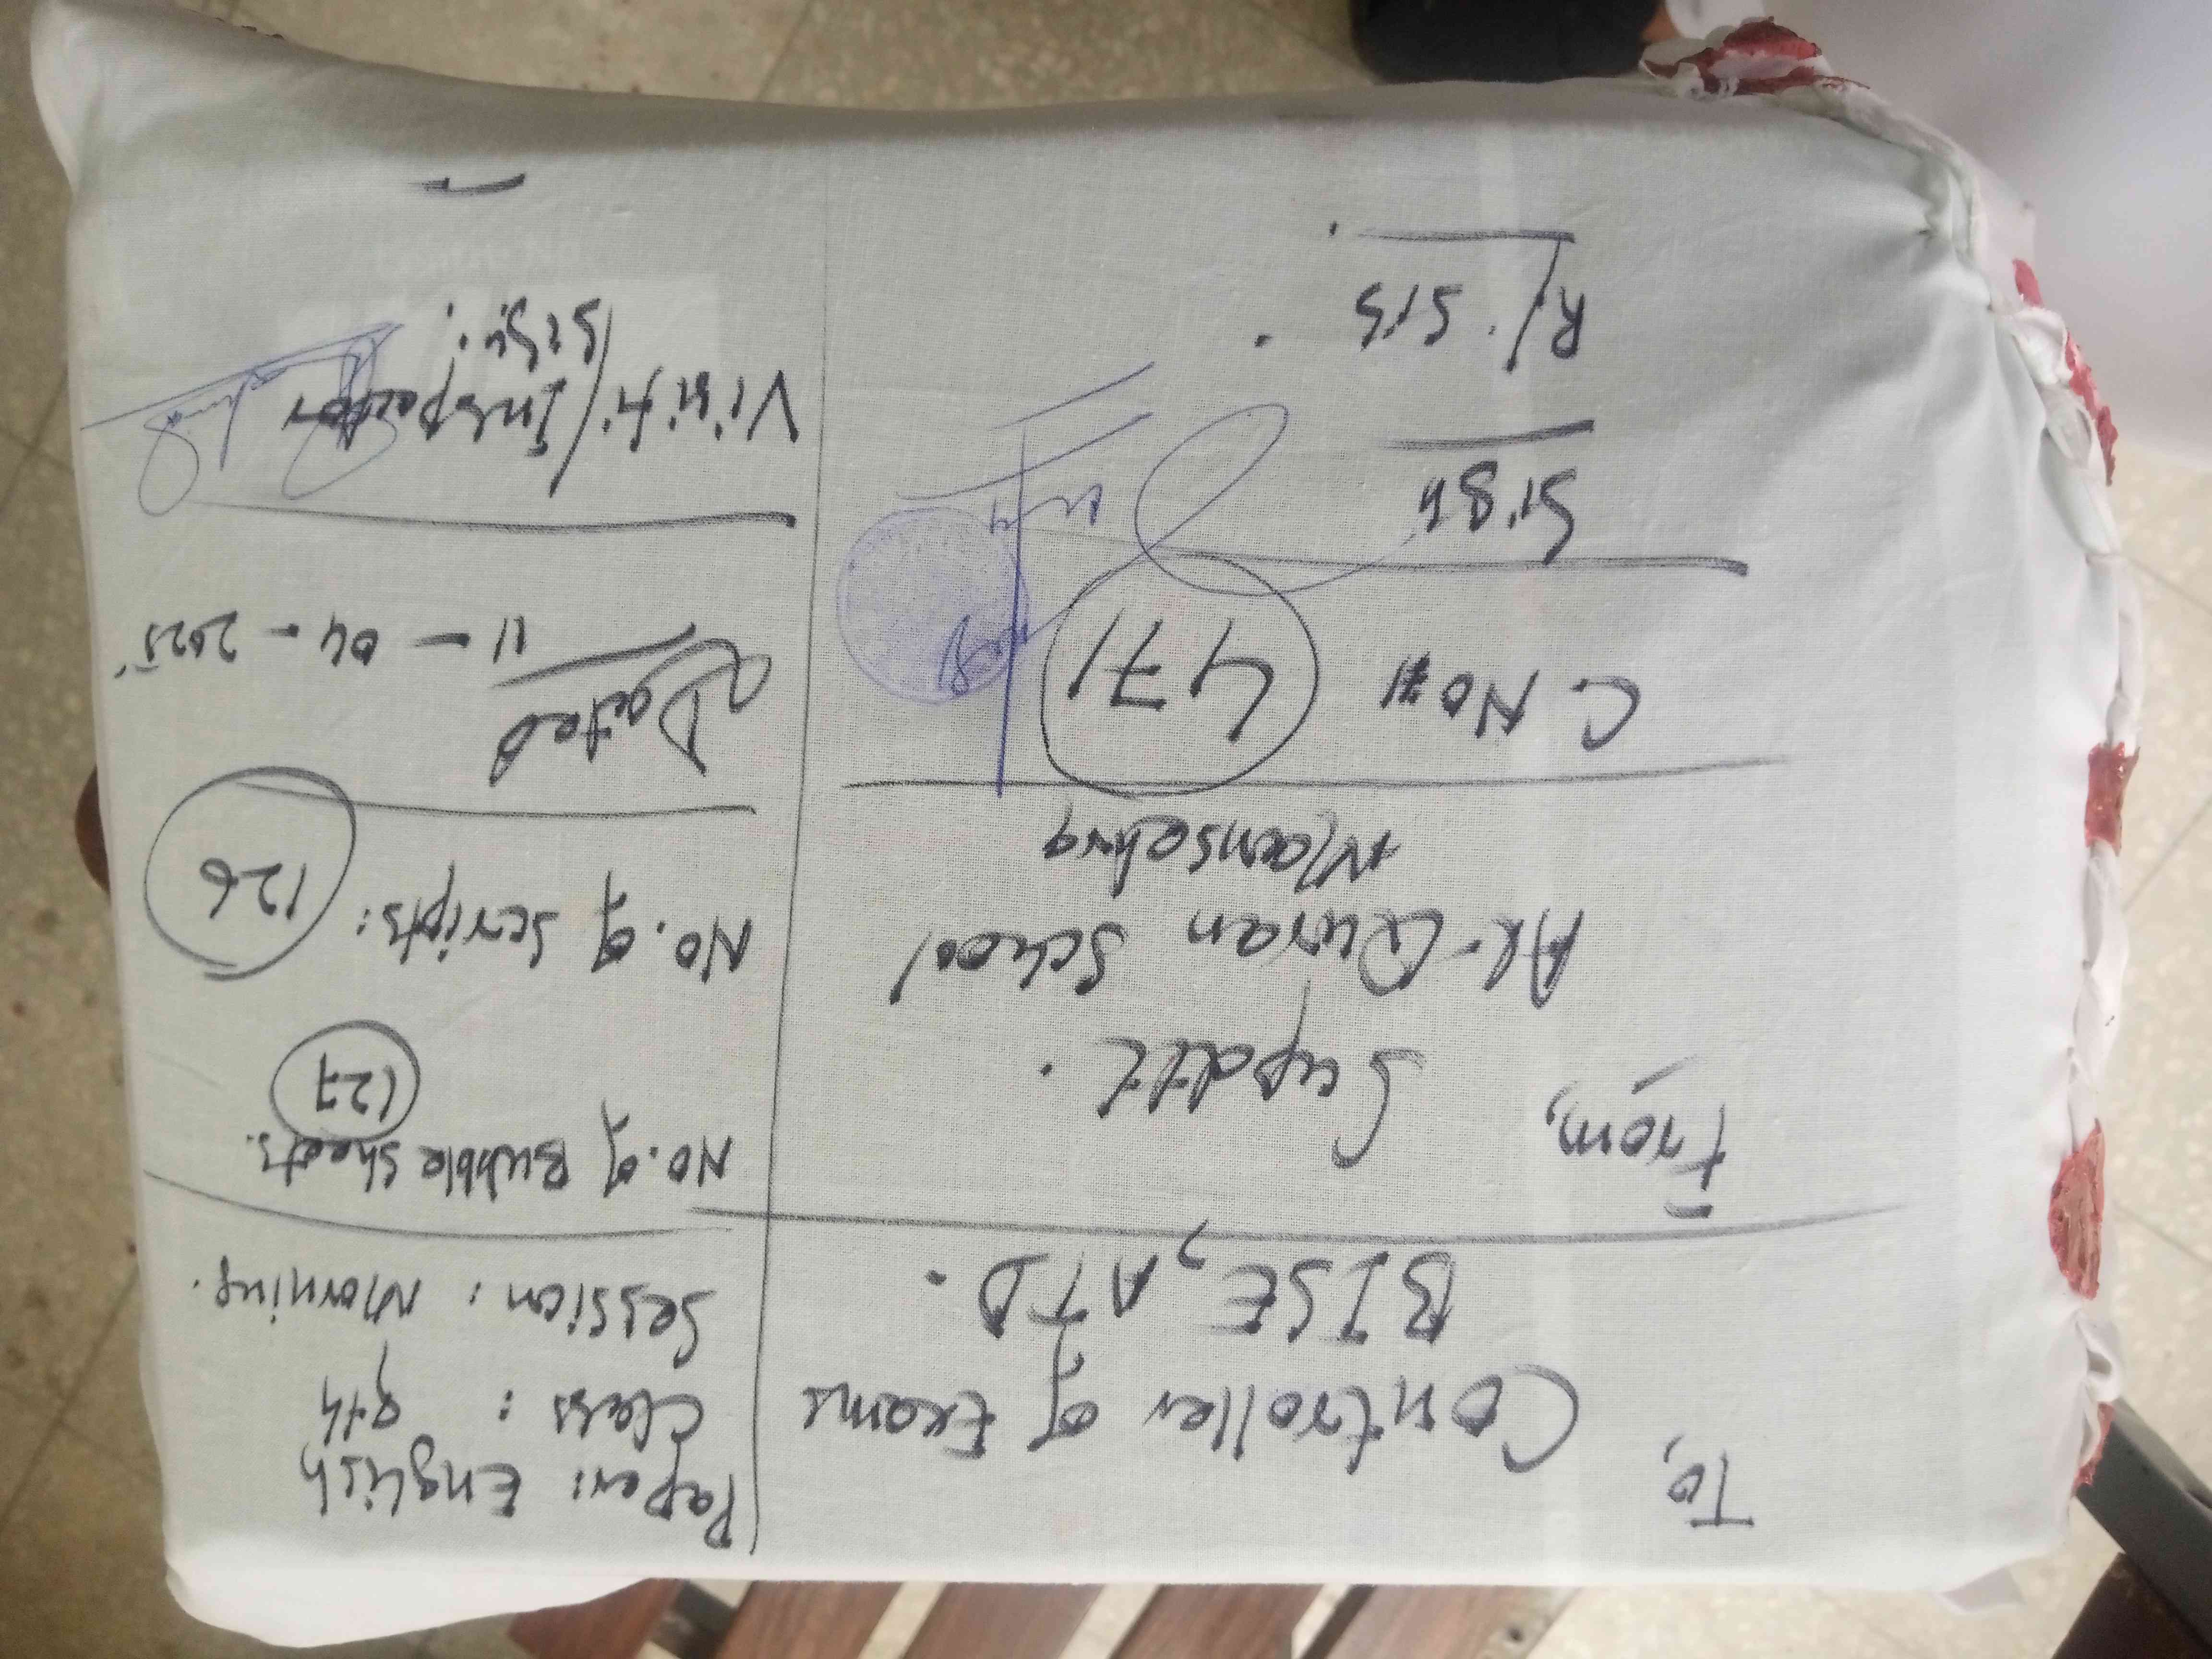 To,
Controller of Exams
BISE, ATD.
From,
Supdtt.
Al-Quran School
Mansehra
C. No #
471
Sign
R/. SIS
Paper: English
Class : 9th
Session : Morning.
No. of Bubble Sheets.
127
No. of Scripts:
126
Dated
11 - 04 - 2025
Visit./Inspector
Sign.